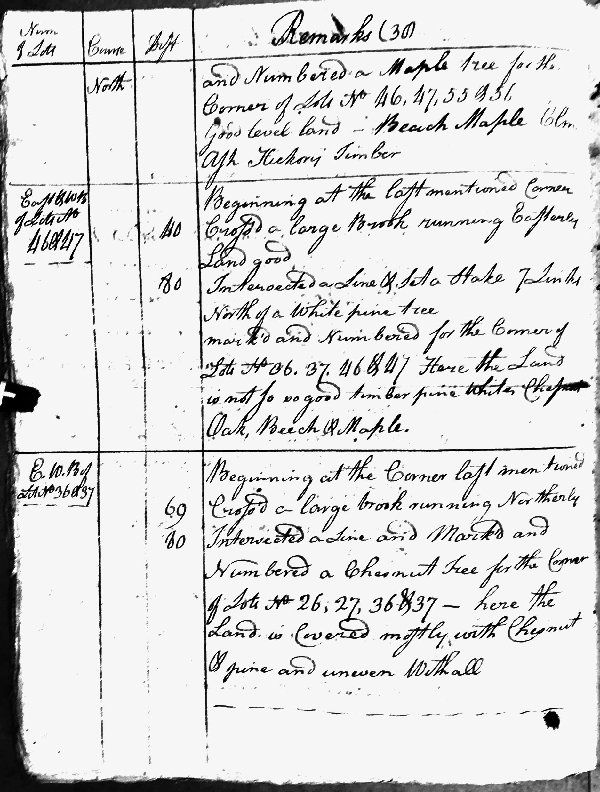 Num of Lots Course Dist Remarks (38)
North and Numbered a Maple tree for the
Corner of Lots No 46, 47, 55 & 51,
Good level land - Beach Maple Elm
Ash Hickory Timber
East & W B of Lots No 46 & 47 Beginning at the last mentioned Corner
40 Cross'd a large Brook running Easterly
Land good
80 Intersected a Line & Set a Stake 7 Links
North of a White pine tree
mark'd and Numbered for the Corner of
Lots No 36. 37. 46 & 47 Here the Land
is not so good timber pine White
Oak, Beech & Maple.
E. W. B of Lots No 36 & 37 Beginning at the Corner last mentioned
69 Cross'd a large brook running Northerly
80 Intersected a Line and Mark'd and
Numbered a Chesnut Tree for the Corner
of Lots No 26, 27, 36 & 37 - here the
Land is Covered mostly with Chesnut
& pine and uneven Withall